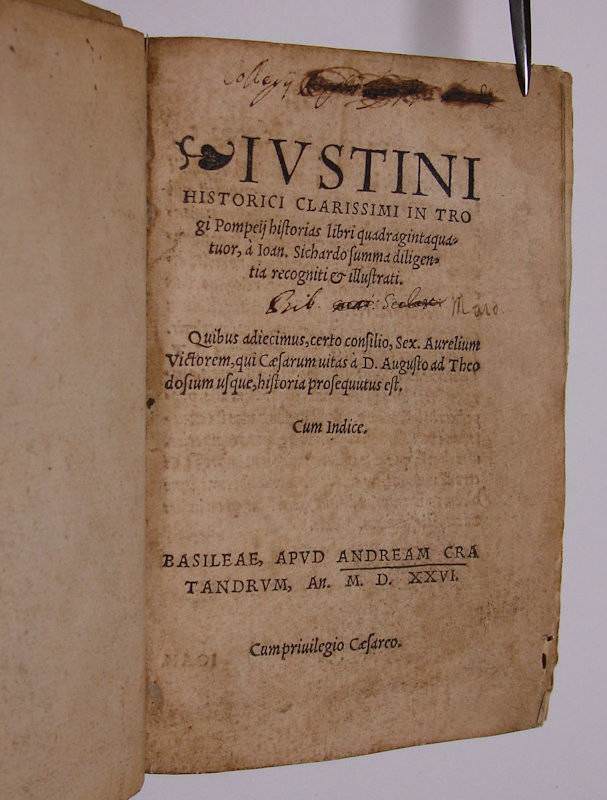 Collegij
IVSTINI
HISTORICI CLARISSIMI IN TRO
gi Pompeij historias libri quadragintaqua-
tuor, à Ioan. Sichardo summa diligen-
tia recogniti & illustrati.
Bib.
Quibus adiecimus, certo consilio, Sex. Aurelium
Victorem, qui Cæsarum uitas à D. Augusto ad Theo
dosium usque, historia prosequutus est.
Cum Indice.
BASILEAE, APVD ANDREAM CRA
TANDRVM, An. M. D. XXVI.
Cum priuilegio Cæsareo.